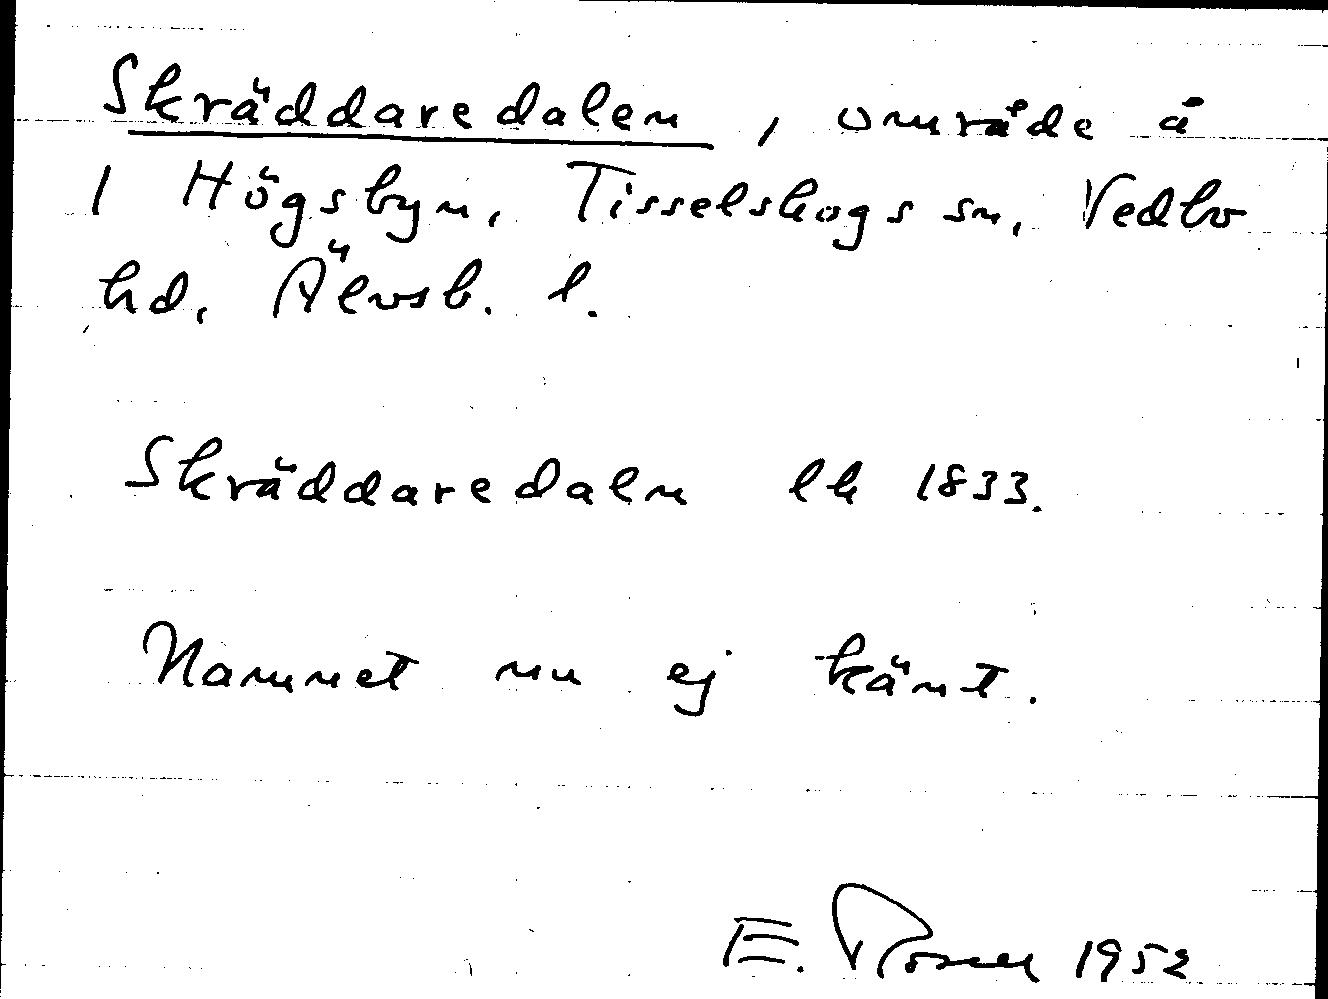 Skräddaredalen, område å
1 Högsbyn, Tisselskogs sn, Vedbo
hd. Älvsb. l.
Skräddaredaln lh 1833.
Namnet nu ej känt.
E. Rosell 1952